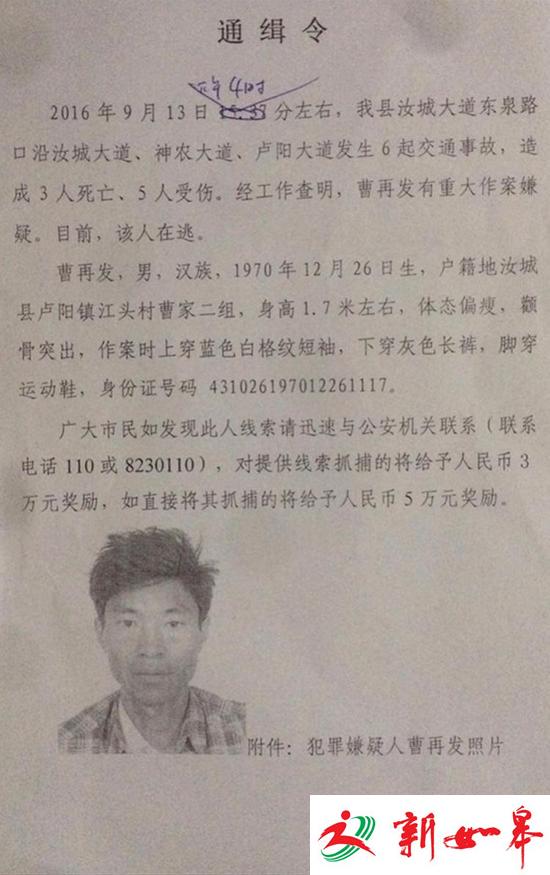 通缉令
下午4时
2016年9月13日15:37分左右，我县汝城大道东泉路
口沿汝城大道、神农大道、卢阳大道发生6起交通事故，造
成3人死亡、5人受伤。经工作查明，曹再发有重大作案嫌
疑。目前，该人在逃。
曹再发，男，汉族，1970年12月26日生，户籍地汝城
县卢阳镇江头村曹家二组，身高1.7米左右，体态偏瘦，颧
骨突出，作案时上穿蓝色白格纹短袖，下穿灰色长裤，脚穿
运动鞋，身份证号码 431026197012261117。
广大市民如发现此人线索请迅速与公安机关联系（联系
电话110或8230110），对提供线索抓捕的将给予人民币3
万元奖励，如直接将其抓捕的将给予人民币5万元奖励。
附件：犯罪嫌疑人曹再发照片
新如皋